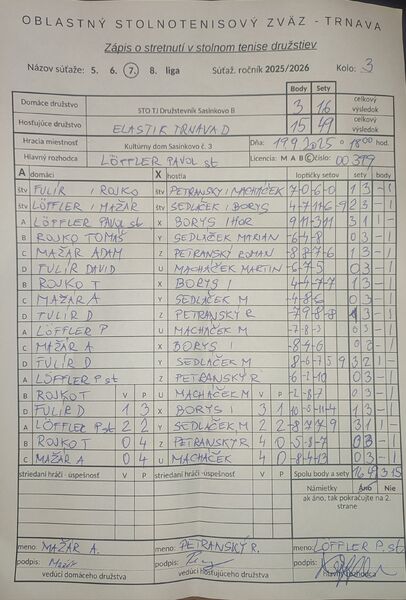 OBLASTNÝ STOLNOTENISOVÝ ZVÄZ - TRNAVA
Zápis o stretnutí v stolnom tenise družstiev
Názov súťaže: 5. 6. 7. 8. liga Súťaž. ročník 2025/2026 Kolo: 3
Body Sety
Domáce družstvo STO TJ Družstevník Sasinkovo B 3 16 celkový výsledok
Hosťujúce družstvo ELASTIK TRNAVA D 15 49 celkový výsledok
Hracia miestnosť Kultúrny dom Sasinkovo č. 3 Dňa: 19.9.2025 o 18:00 hod.
Hlavný rozhodca LÖFFLER PAVOL st Licencia: M A B C číslo: 00399
A domáci X hostia loptičky setov sety body
štv FULÍR / ROJKO štv PETRANSKÝ / MACHÁČEK 7-0-6-0 1 3 -1
štv LÖFFLER / MAŽÁR štv SEDLÁČEK / BORYS
A LÖFFLER PAVOL st X BORYS IHOR 3 1 1-
B ROJKO TOMÁŠ Y SEDLÁČEK MARIÁN -6-4-8 0 3 -1
C MAŽÁR ADAM Z PETRANSKÝ ROMAN 1 3 -1
D FULÍR DAVID U MACHÁČEK MARTIN -6-7-5 0 3 -1
B ROJKO T X BORYS I 1 3 -1
C MAŽÁR A Y SEDLÁČEK M -4-8-6 0 3 -1
D FULÍR D Z PETRANSKÝ R 1 3 -1
A LÖFFLER P U MACHÁČEK M -7-8-3 0 3 -1
C MAŽÁR A X BORYS I 0 3 -1
D FULÍR D Y SEDLÁČEK M 3 2 1-
A LÖFFLER P st Z PETRANSKÝ R 0 3 -1
B ROJKO T V P U MACHÁČEK M V P -2-8-7 0 3 -1
D FULÍR D 1 3 X BORYS I 3 1 1 3 -1
A LÖFFLER P st 2 2 Y SEDLÁČEK M 2 2 3 1 1-
B ROJKO T 0 4 Z PETRANSKÝ R 4 0 -5-8-7 0 3 -1
C MAŽÁR A 0 4 U MACHÁČEK 4 0 0 3 -1
striedaní hráči - úspešnosť V P striedaní hráči - úspešnosť V P Spolu body a sety 16 49 3 15
Námietky Áno Nie
ak áno, tak pokračujte na 2. strane
meno: MAŽÁR A. meno: PETRANSKÝ R. meno: LÖFFLER P. st
podpis: podpis: podpis:
vedúci domáceho družstva vedúci hosťujúceho družstva hlavný rozhodca